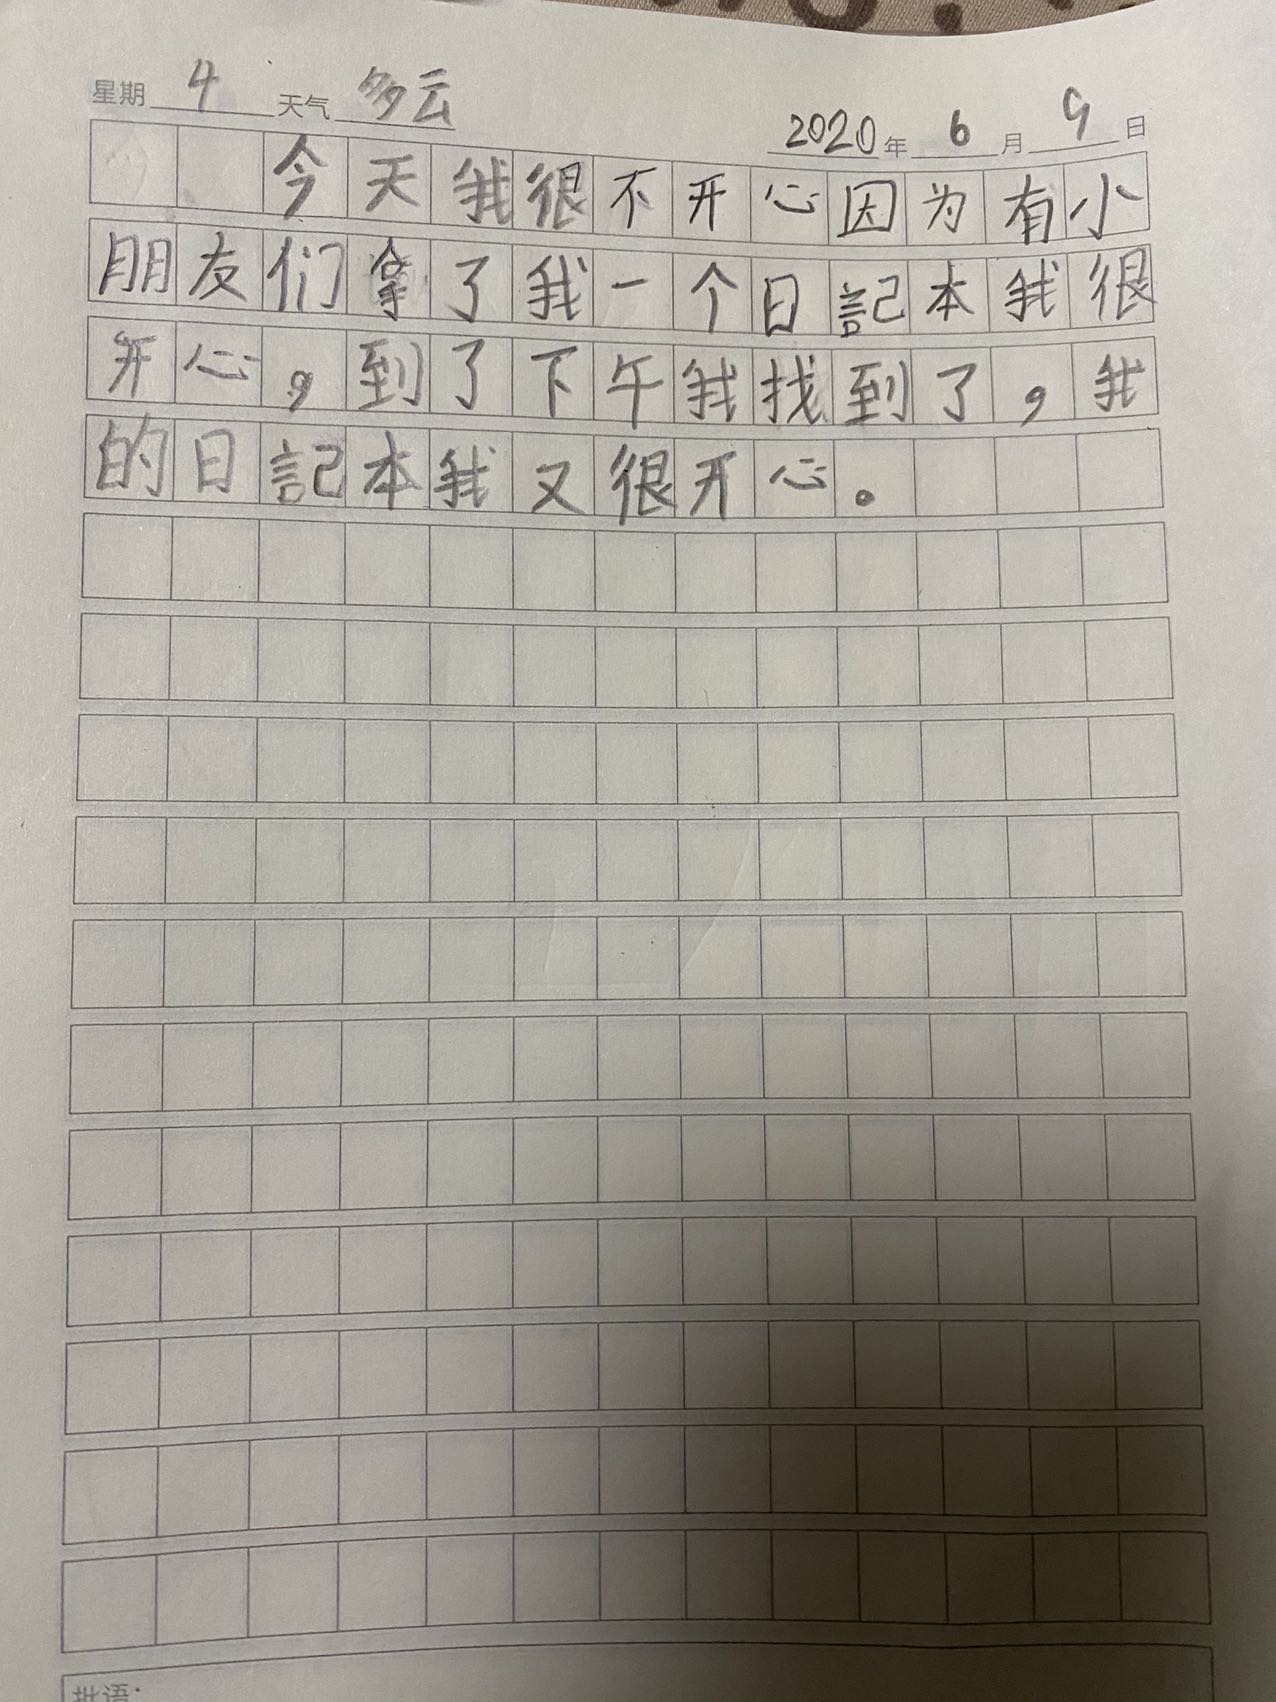 星期 4 天气 多云
2020年 6月 9日
今天我很不开心因为有小
朋友们拿了我一个日記本我很
开心,到了下午我找到了,我
的日記本我又很开心。
批语: